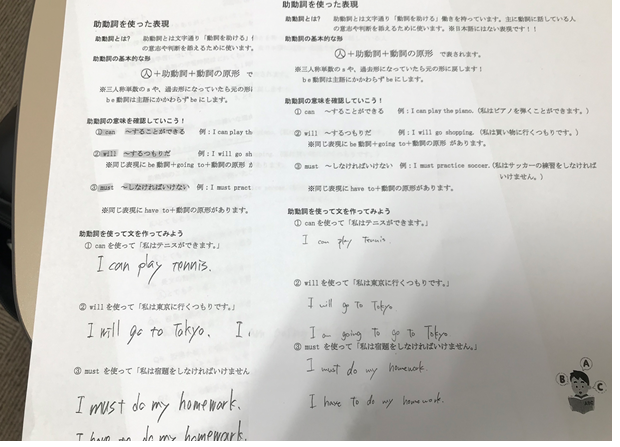 助動詞を使った表現
助動詞とは? 助動詞とは文字通り「動詞を助ける」
の意志や判断を添えるために使います。
助動詞の基本的な形
人+助動詞+動詞の原形 で
※三人称単数のsや、過去形になっていたら元の形
be動詞は主語にかかわらずbeにします。
助動詞の意味を確認していこう!
① can ~することができる 例:I can play th
② will ~するつもりだ 例:I will go sh
※同じ表現にbe動詞+going to+動詞の原形 が
③ must ~しなければいけない 例:I must pract
※同じ表現にhave to+動詞の原形があります。
助動詞を使って文を作ってみよう
① canを使って「私はテニスができます。」
I can play tennis.
② willを使って「私は東京に行くつもりです。」
I will go to Tokyo. I
③ mustを使って「私は宿題をしなければいけません
I must do my homework.
do my homework.
助動詞を使った表現
助動詞とは? 助動詞とは文字通り「動詞を助ける」働きを持っています。主に動詞に話している人
の意志や判断を添えるために使います。※日本語にはない表現です!!
助動詞の基本的な形
人+助動詞+動詞の原形 で表されます。
※三人称単数のsや、過去形になっていたら元の形に戻します!
be動詞は主語にかかわらずbeにします。
助動詞の意味を確認していこう!
① can ~することができる 例:I can play the piano.(私はピアノを弾くことができます。)
② will ~するつもりだ 例:I will go shopping.(私は買い物に行くつもりです。)
※同じ表現にbe動詞+going to+動詞の原形 があります。
③ must ~しなければいけない 例:I must practice soccer.(私はサッカーの練習をしなければ
いけません。)
※同じ表現にhave to+動詞の原形があります。
助動詞を使って文を作ってみよう
① canを使って「私はテニスができます。」
I can play tennis
② willを使って「私は東京に行くつもりです。」
I will go to Tokyo
I am going to go to Tokyo
③ mustを使って「私は宿題をしなければいけません。」
I must do my homework.
I have to do my homework.
A
B
C